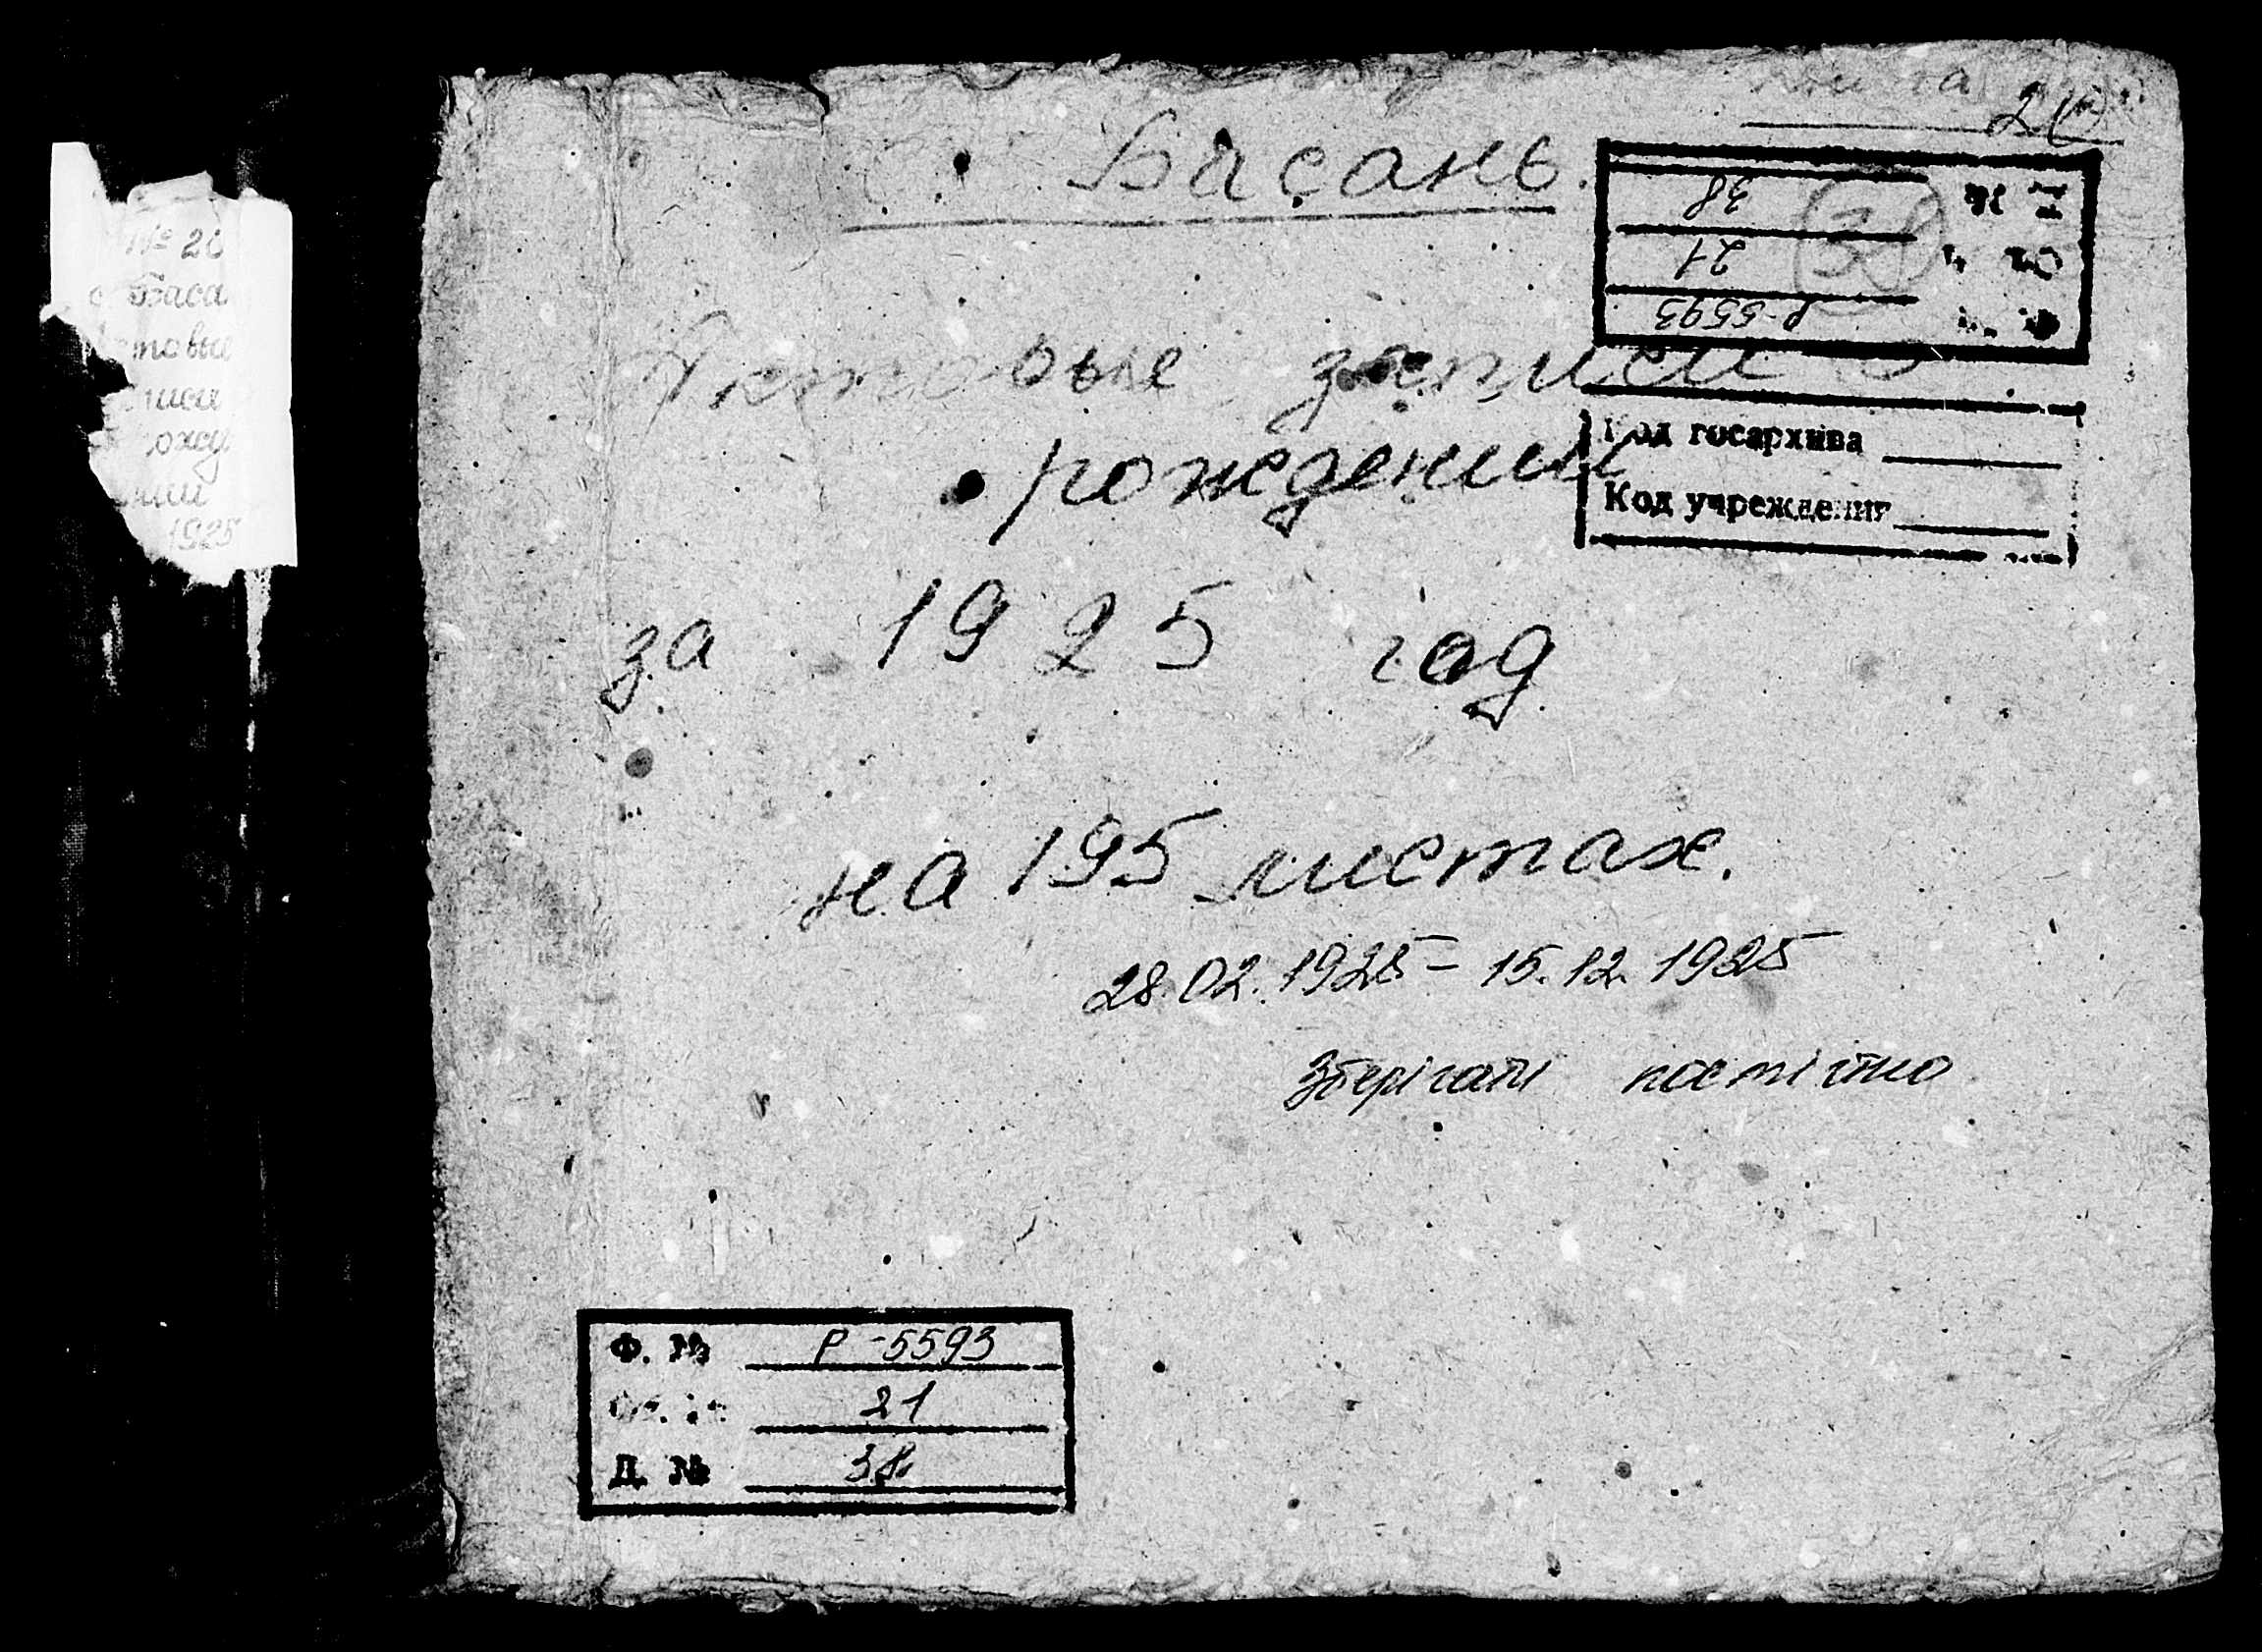 № 2
Баса
товые
писи
рожд
ении
1925
с. Басань.
Д. № 38
Оп. № 21
Ф. № Р-5593
Актовые записи о
рождении
Код госархива
Код учреждения
за 1925 год
на 195 листах.
28.02.1925 - 15.12.1925
Зберігати постійно
Ф. № Р-5593
Оп. № 21
Д. № 38